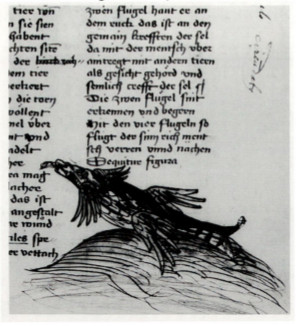 tier von
n sie sten
habent
chten site
der
em tier
verkert
die torn
vollent
nel vber
nt vnd
adelt
ea mag
achet
das ist
angestalt
wund
iles spe
er vettach
zwen flugel hant er an
dem ruck das ist an den
gemain krefften der sel
da mit der mentsch vber
antregt mit andern tiern
als gesicht gehord vnd
semlich crefft der sel
Die zwen flugel sint
erkennen vnd begern
Mit den vier flugeln so
flugt der sinn rich ment
sch verren vnnd nachen
Sequitur figura